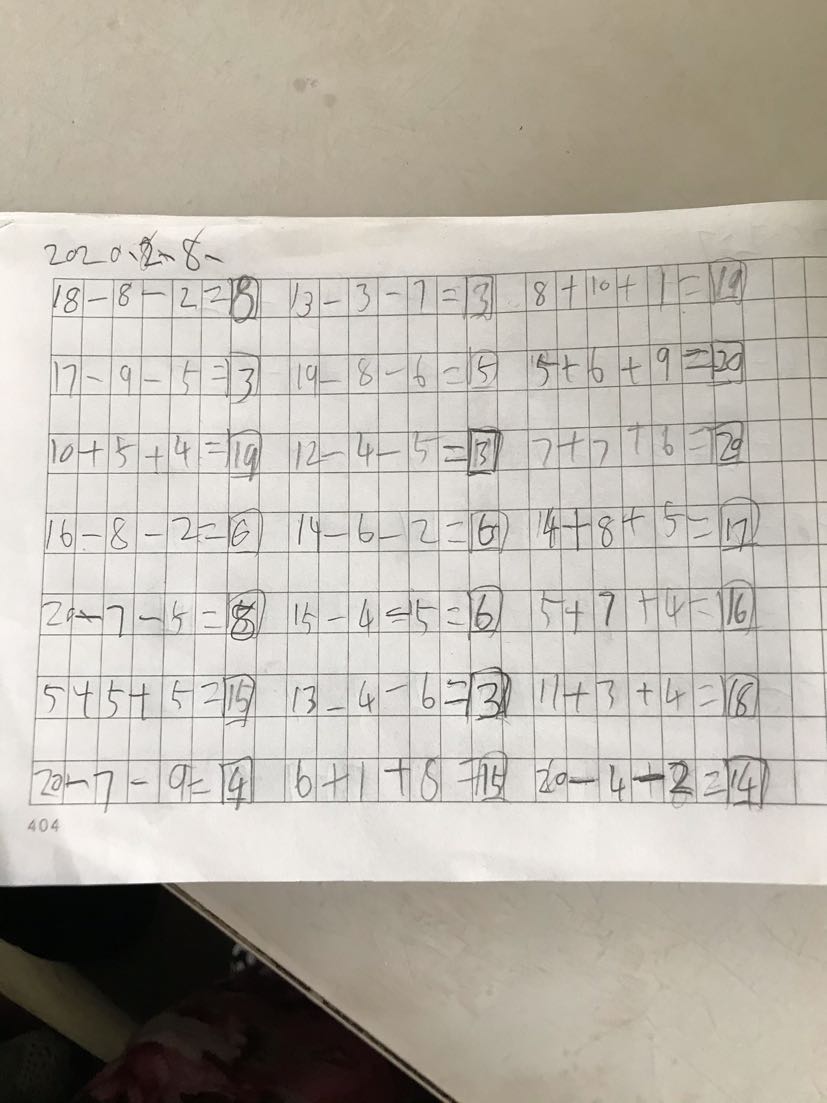 2020.2.8.
18-8-2=8 13-3-7=3 8+10+1=19
17-9-5=3 19-8-6=5 5+6+9=20
10+5+4=19 12-4-5=3 7+7+6=20
16-8-2=6 14-6-2=6 14+8+5=17
20-7-5=8 15-4-5=6 5+7+4=16
5+5+5=15 13-4-6=3 11+3+4=18
20-7-9=4 6+1+8=15 20-4-2=14
404